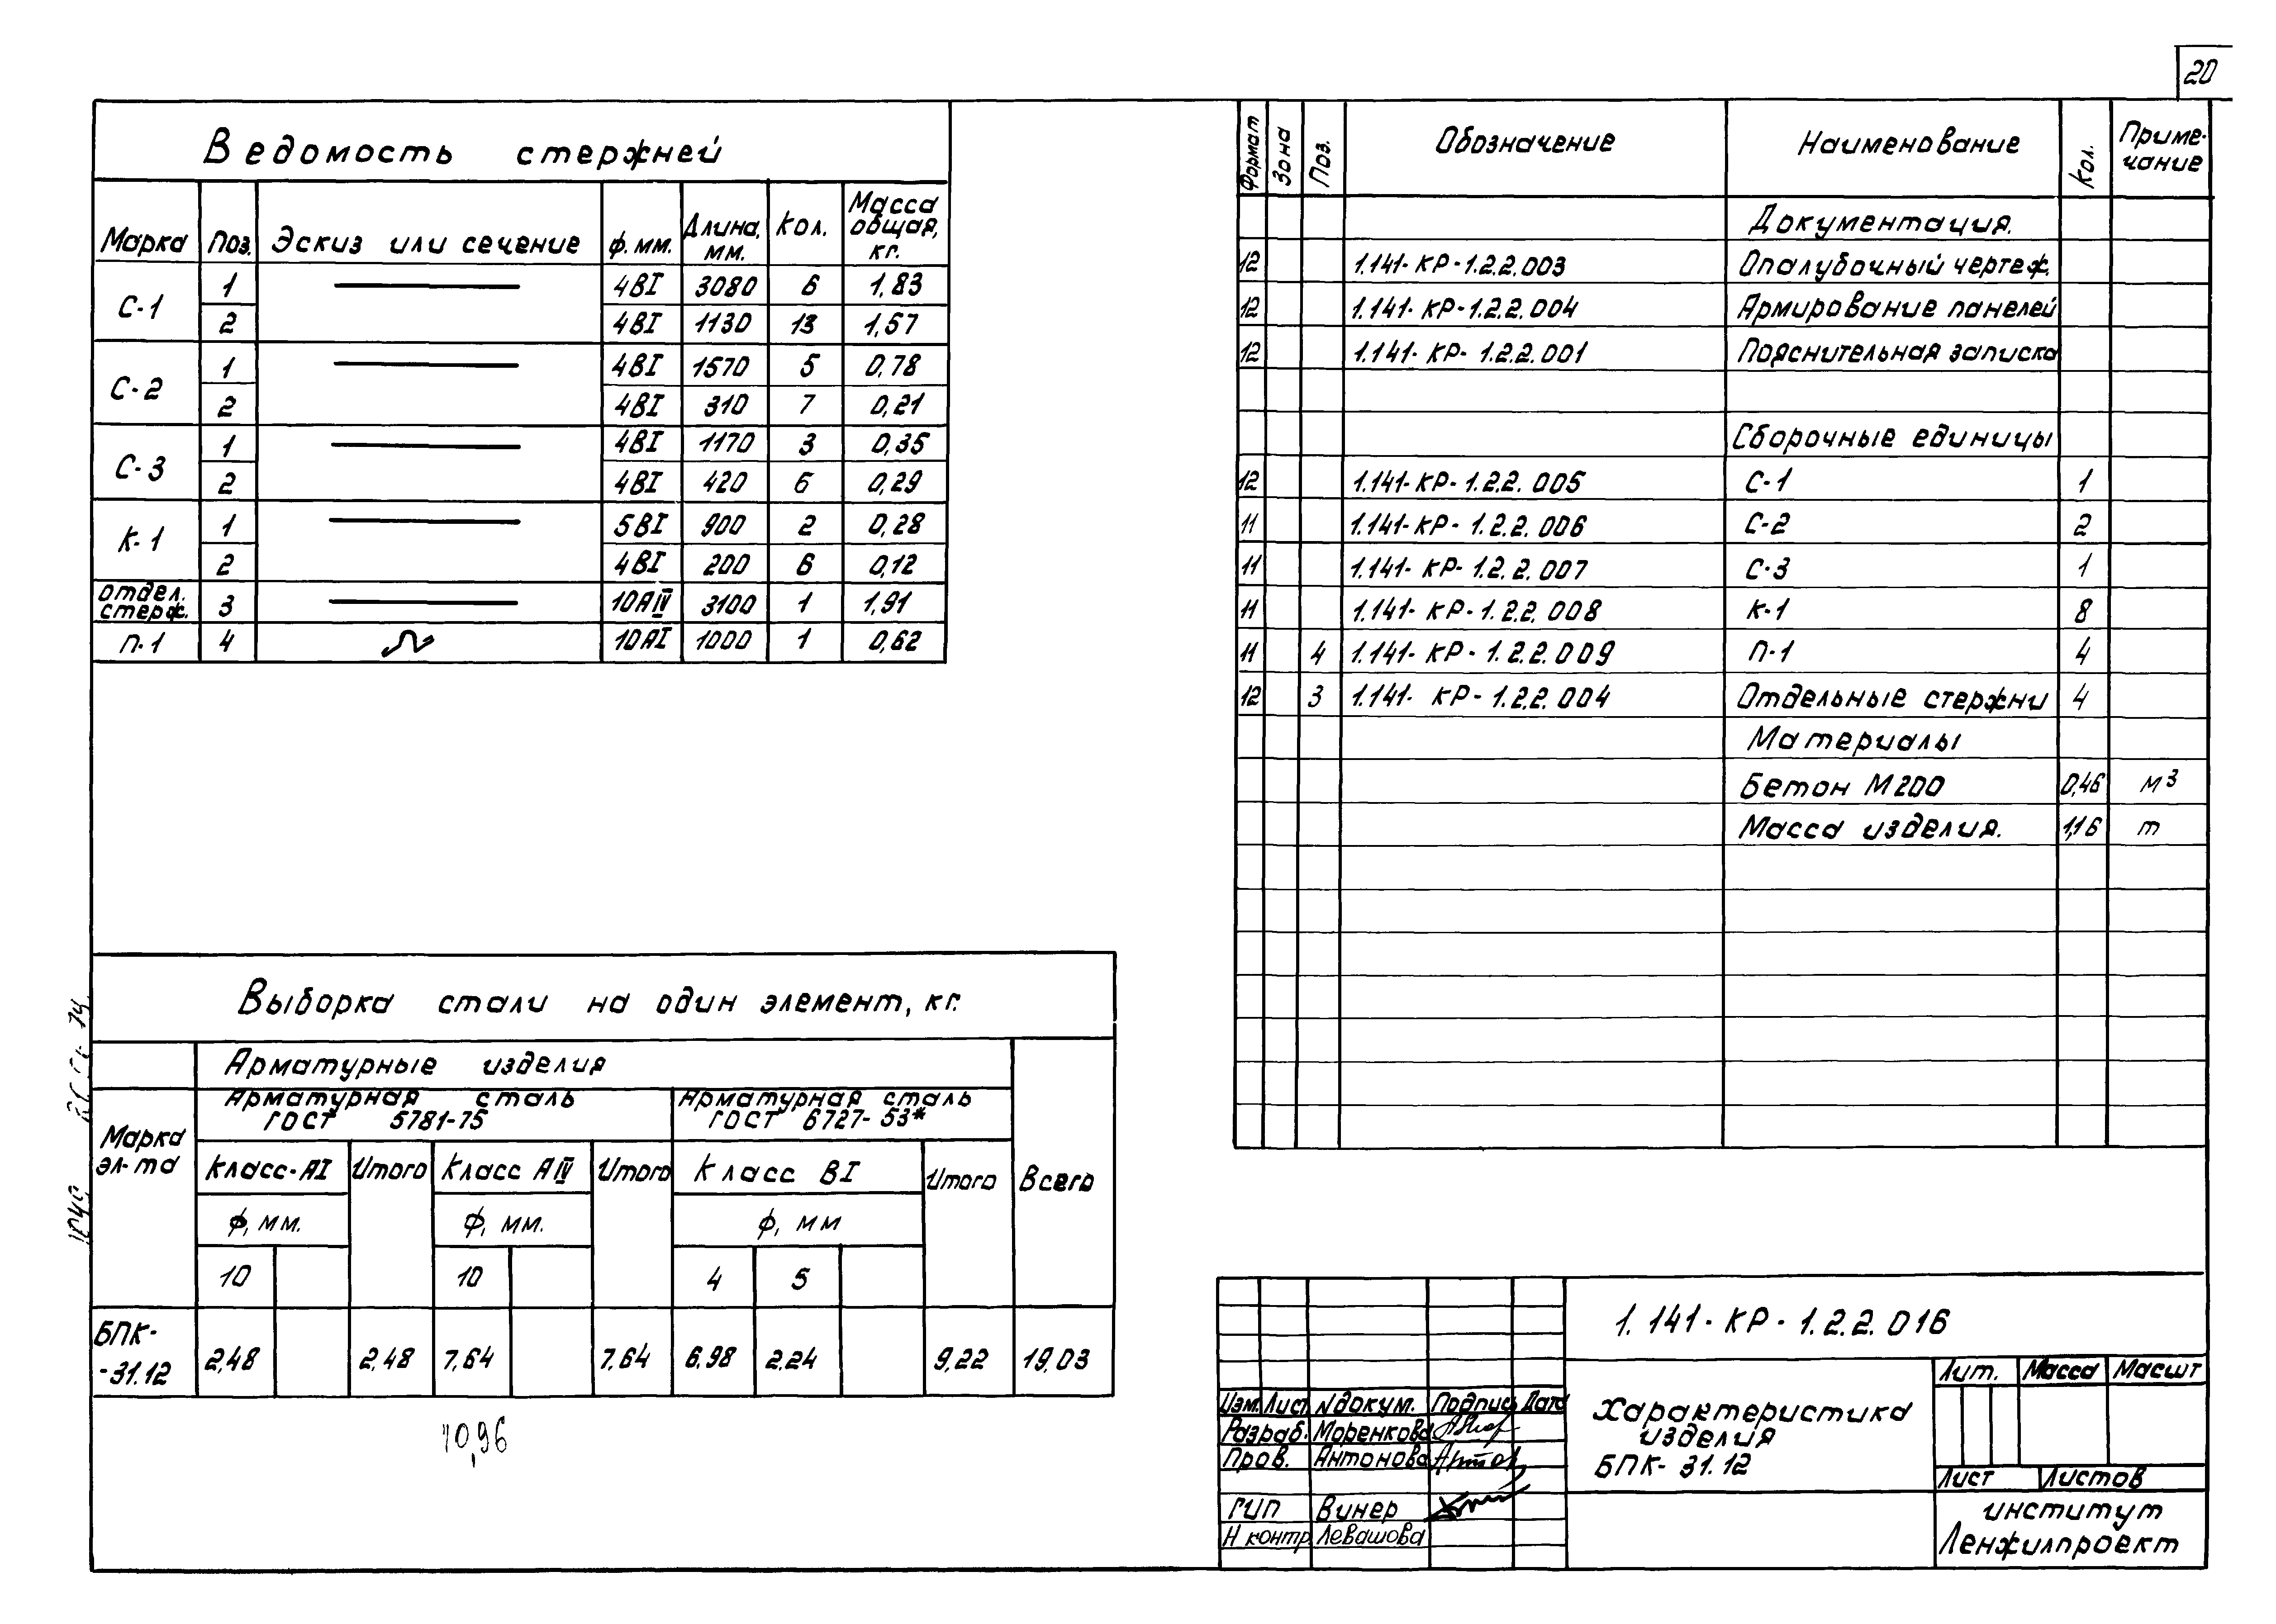 20
Ведомость стержней
Марка Поз. Эскиз или сечение ф.мм. Длина, мм. Кол. Масса общая, кг.
С-1 1 4ВI 3080 6 1,83
2 4ВI 1130 13 1,57
С-2 1 4ВI 1570 5 0,78
2 4ВI 310 7 0,21
С-3 1 4ВI 1170 3 0,35
2 4ВI 420 6 0,29
К-1 1 5ВI 900 2 0,28
2 4ВI 200 6 0,12
отдел. стерж. 3 10АIV 3100 1 1,91
П-1 4 10АI 1000 1 0,62
Формат Зона Поз. Обозначение Наименование Кол. Приме-чание
Документация.
12 1.141-КР-1.2.2.003 Опалубочный чертеж.
12 1.141-КР-1.2.2.004 Армирование панелей
12 1.141-КР-1.2.2.001 Пояснительная записка
Сборочные единицы
12 1.141-КР-1.2.2.005 С-1 1
11 1.141-КР-1.2.2.006 С-2 2
11 1.141-КР-1.2.2.007 С-3 1
11 1.141-КР-1.2.2.008 К-1 8
11 4 1.141-КР-1.2.2.009 П-1 4
12 3 1.141-КР-1.2.2.004 Отдельные стержни 4
Материалы
Бетон М200 0,46 м3
Масса изделия. 1,16 т
Выборка стали на один элемент, кг.
Марка эл-та
Арматурные изделия
Арматурная сталь ГОСТ 5781-75
Арматурная сталь ГОСТ 6727-53*
Класс-АI Итого Класс АIV Итого Класс ВI Итого Всего
ф, мм. ф, мм. ф, мм
10 10 4 5
БПК-
-31.12 2,48 2,48 7,64 7,64 6,98 2,24 9,22 19,03
10,96
1.141-КР-1.2.2.016
Изм. Лист №докум. Подпис Дата
Разраб. Моренкова
Пров. Антонова
ГИП Винер
Н контр. Левашова
Характеристика
изделия
БПК-31.12
Лит. Масса Масшт
Лист Листов
институт
Ленжилпроект